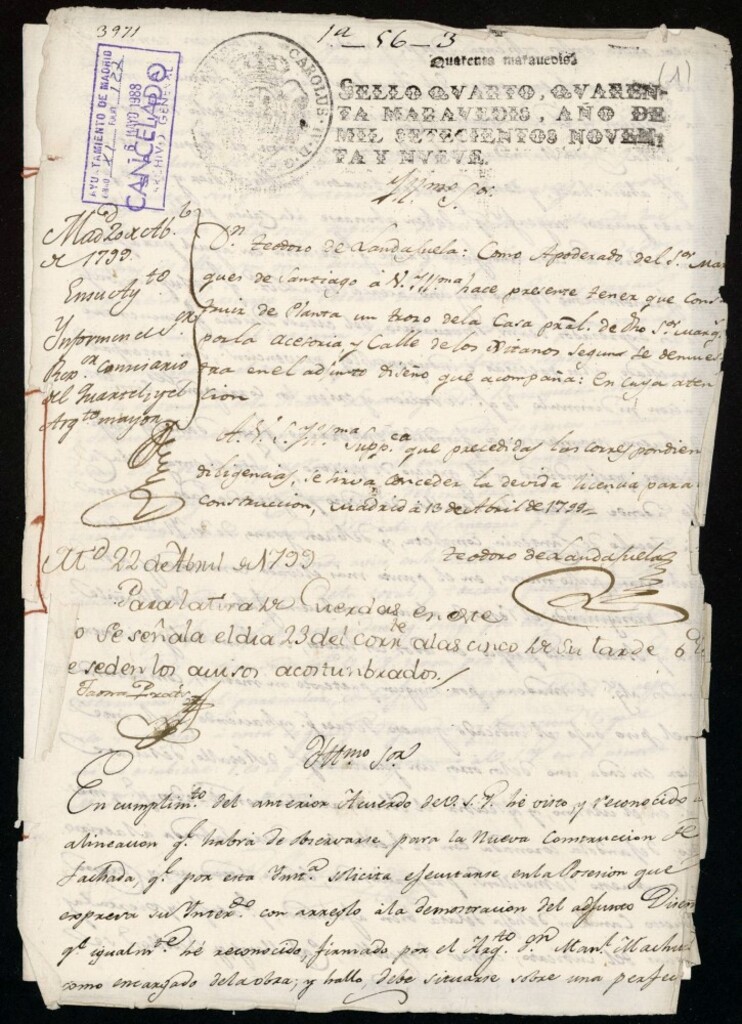 3971
1ª - 56 - 3
(1)
AYUNTAMIENTO DE MADRID
122
CANCELADO
6 MAYO 1988
ARCHIVO GENERAL
CAROLUS II D G
Quarenta maravedis
SELLO QVARTO, QVAREN-
TA MARAVEDIS, AÑO DE
MIL SETECIENTOS NOVEN-
TA Y NVEVE.
Yllmo Sor
Madd 20 de Ab.
de 1799
En su Ayto
Ynformen el Sr
Rexor comisario
del Quartel, y el
Arqto mayor
Dn Teodoro de Landazuela: Como Apoderado del Sr Mar
ques de Santiago á V. Yllma hace presente tener que Cons
truir de Planta un trozo de la Casa pral. de dho Sr Marq.
por la acesoria y Calle de los Xitanos segun se demues
tra en el adjunto diseño que acompaña: En cuya aten
cion
A V. S. Yllma Suppca que precedidas las correspondien
diligencias, se sirva conceder la devida licencia para
construccion, Madrid á 13 de Abril de 1799
Teodoro de Landazuela
Md 22 de Abril de 1799
Para la tira de Cuerdas en este
o se señala el dia 23 del corrte a las cinco de su tarde
e se den los avisos acostunbrados.
Yllmo Sor
En cumplimto del anterior Acuerdo de V. S. Y. hé visto, y reconocido
alineacion qe habrá de observarse para la Nueva Construccion de
fachada, qe por esta Ynsta solicita ejecutarse en la Posesion que
expresa su Yntere. con arreglo á la demostracion del adjunto Diseñ
qe igualmte hé reconocido, firmado por el Arqto Dn Manl Machu
como encargado de la obra; y hallo, debe situarse sobre una perfec